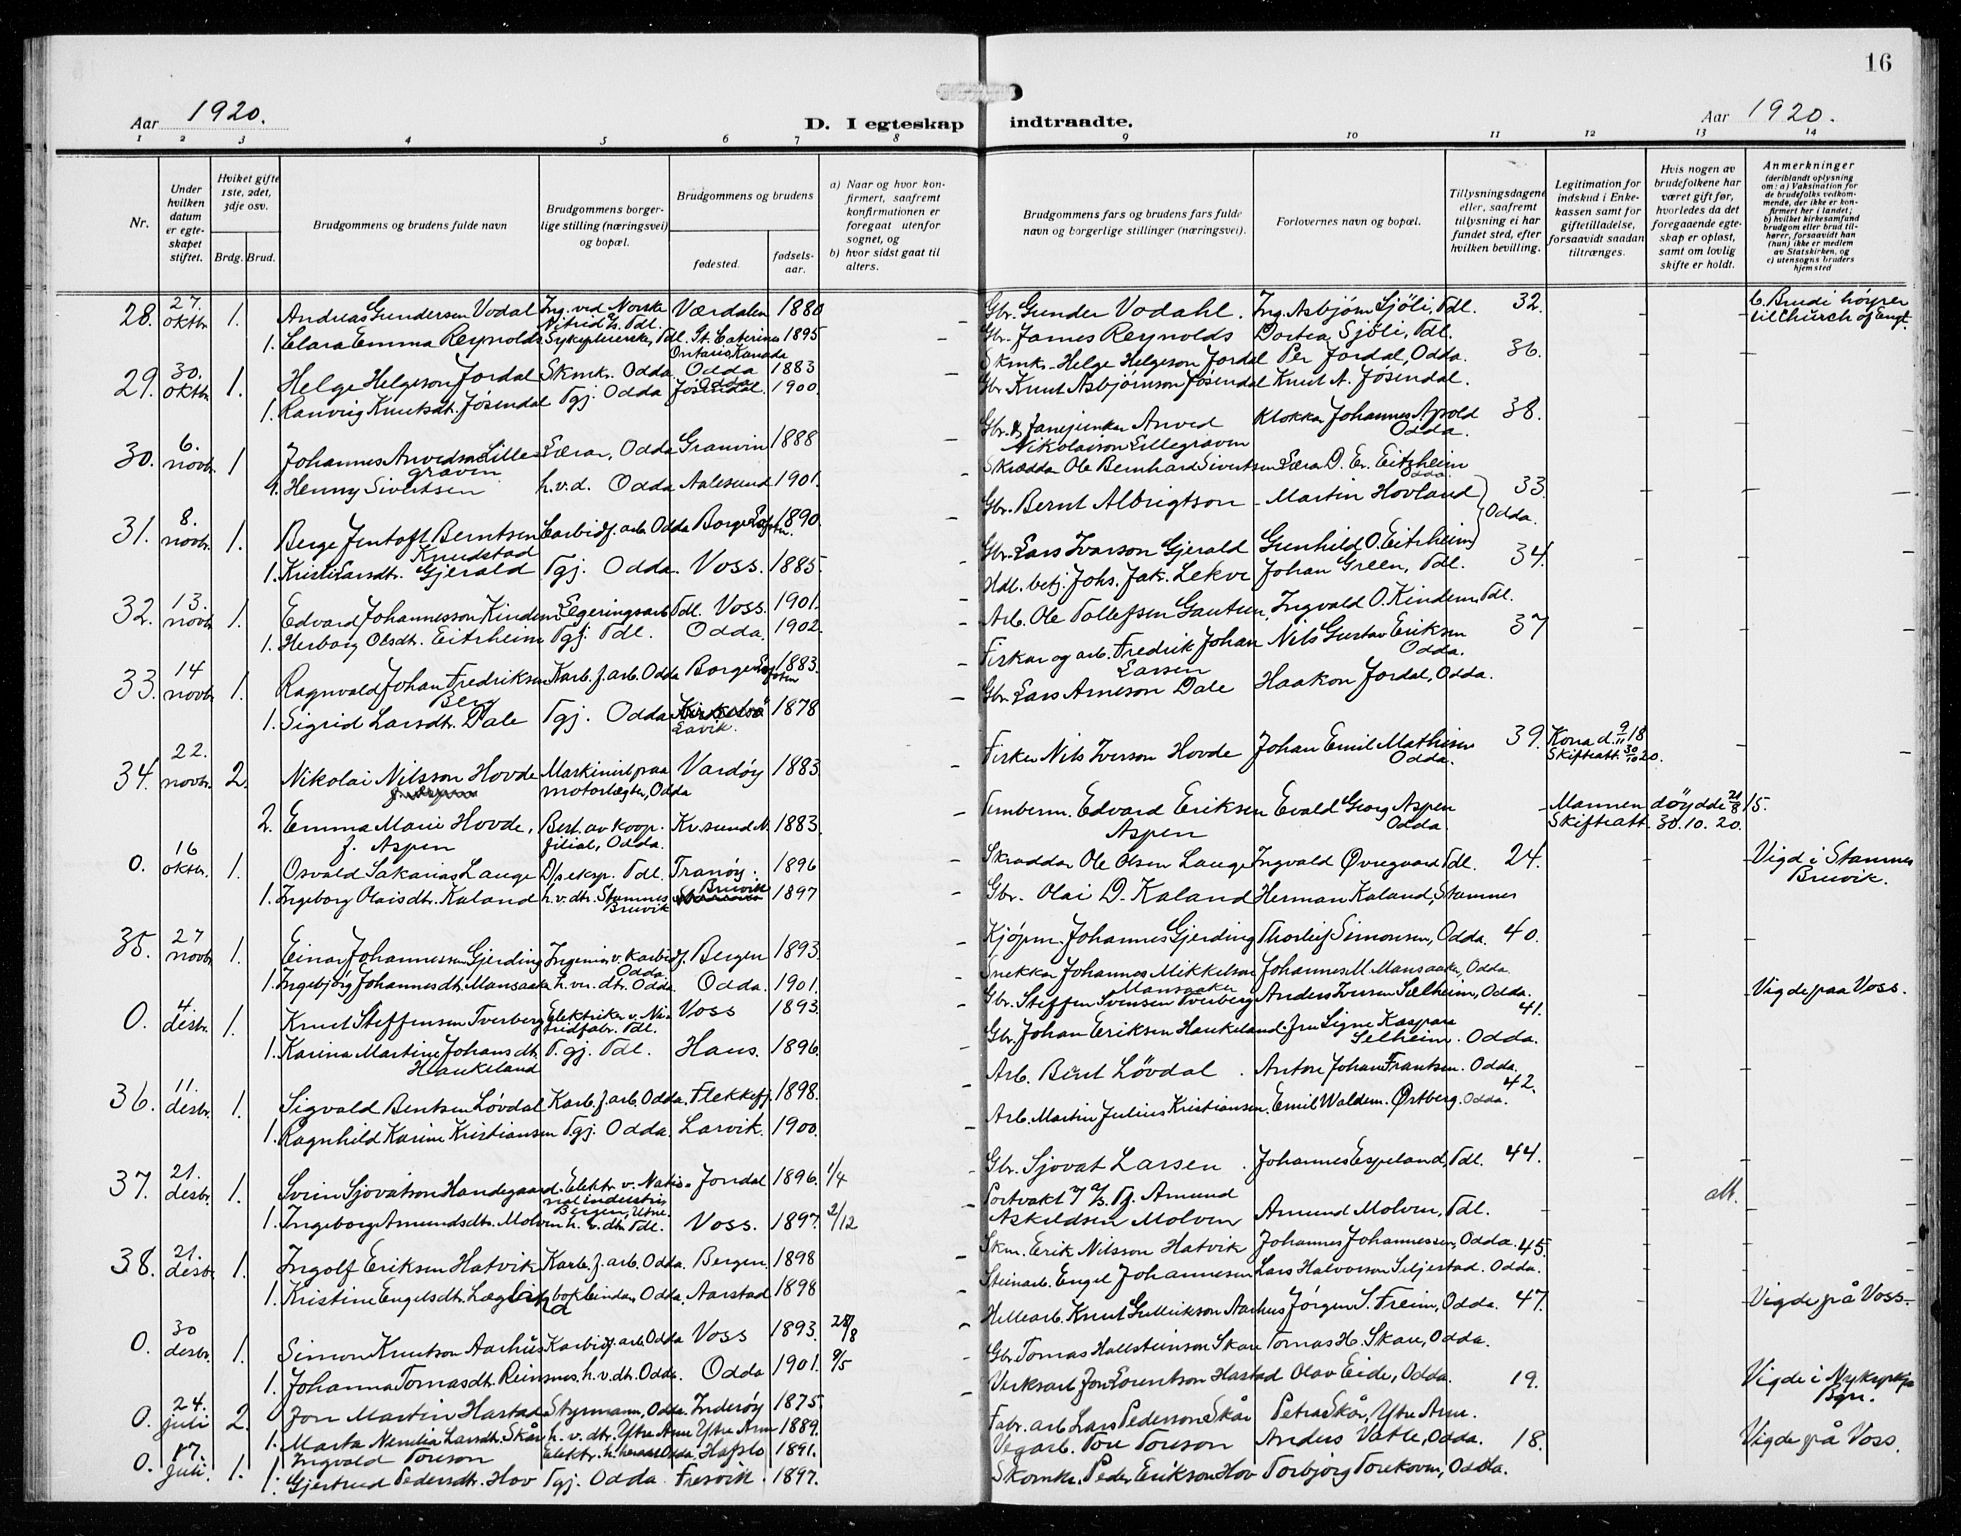 16
Aar 1920.
D. I egteskap indtraadte.
Aar 1920.
1 2 3 4 5 6 7 8 9 10 11 12 13 14
Nr.
Under hvilken datum er egteskapet stiftet.
Hviket gifte 1ste, 2det, 3dje osv.
Brdg. Brud.
Brudgommens og brudens fulde navn
Brudgommens borgerlige stilling (næringsvei) og bopæl.
Brudgommens og brudens
fødested.
fødselsaar.
a) Naar og hvor konfirmert, saafremt konfirmationen er foregaat utenfor sognet, og
b) hvor sidst gaat til alters.
Brudgommens fars og brudens fars fulde navn og borgerlige stillinger (næringsvei).
Forlovernes navn og bopæl.
Tillysningsdagene eller, saafremt tillysning ei har fundet sted, efter hvilken bevilling.
Legitimation for indskud i Enkekassen samt for giftetilladelse, forsaavidt saadan tiltrænges.
Hvis nogen av brudefolkene har været gift før, hvorledes da det foregaaende egteskap er opløst, samt om lovlig skifte er holdt.
Anmerkninger (deriblandt oplysning om: a) Vaksination for de brudefolks vedkommende, der ikke er konfirmert her i landet; b) hvilket kirkesamfund brudgom eller brud tilhører, forsaavidt han (hun) ikke er medlem av Statskirken, og c) utensogns bruders hjemsted
28. 27. oktbr. 1. Andreas Gundersen Vodal Ing. ved Norske Nitrid h. Tdl. Værdalen 1880 – Gbr. Gunder Vodahl. Ing. Asbjørn Sjöli, Tdl. 32. b. Brudi høyrer til Church of Engl.
1. Clara Emma Reynolds Sykepleierske, Tdl. St. Caterines Ontario Kanada 1895 – Gbr. James Reynolds Dortea Sjöli, Tdl.
29. 30. oktbr. 1. Helge Helgeson Jordal Skmk. Odda Odda 1883 – Skmk. Helge Helgeson Jordal Per Jordal, Odda. 36.
1. Ranveig Knutsdt. Jösendal Tgj. Odda Jösendal. Odda 1900. Gbr. Knut Asbjørnson Jösendal Knut A. Jösendal.
30. 6. novbr. 1 Johannes Anvedson Lillegraven Lærar, Odda Granvin 1888 – Gbr. & fanejunker Anved Nikolaison Lillegraven Klokkar Johannes Apold Odda. 38.
1. Henny Sivertsen h.v.d. Odda Aalesund 1901. – Skrædda Ole Bernhard Sivertsen Lærar D. Er. Eitrheim Odda
31. 8. novbr. 1. Berge Jentoft Berntsen Knudstad Carbidf. arb. Odda Borge Lofoten. 1890. – Gbr. Bernt Albrigtson – Martin Hovland } Odda. 33.
1. Kristi Larsdtr. Gjerald Tgj. Odda. Voss. 1885. Gbr. Lars Ivarson Gjerald Gunhild O. Eitrheim
32. 13. novbr. 1. Edvard Johannesson Kindem Legeringsarb. Tdl. Voss. 1901. – Hdl. betj. Johs. Jak. Lekve Johan Green, Tdl. 34.
1. Herborg Olsdt. Eitrheim Tgj. Tdl. Odda. 1902. – Arb. Ole Tollefsen Gautun Ingvald O. Kindem, Tdl.
33. 14 novbr. 1. Ragnvald Johan Fredriksen Berg Karb. f. arb. Odda Borge Lofoten 1883. – Fiskar og arb. Fredrik Johan Larsen Nils Gustav Eriksen Odda. 37
1. Sigrid Larsdtr. Dale Tgj. Odda Lavik. 1878 – Gbr. Lars Arneson Dale Haakon Jordal, Odda.
34. 22. novbr. 2. Nikolai Nilsson Hovde Maskinist paa motorlægter, Odda Vardöy 1883. – Fisker Nils Iverson Hovde Johan Emil Mathisen Odda. 39. Kona d. 9/11 18 Skifteatt. 30/10 20.
2. Emma Marie Hovde, f. Aspen Best. av koop. filial, Odda. Kv.sund N. 1883. – Tømberm. Edvard Eriksen Aspen Evald Georg Aspen Odda. – Mannen döydde 21/8 15. Skifteatt. 30. 10. 20.
0. 16 oktbr. 1. Osvald Sakarias Lauge D/sekp. Tdl. Tranöy. 1896 – Skraddar Ole Olsen Lauge Ingvald Øvregaard Tdl. 24. Vigd i Stamnes Bruvik.
1. Ingeborg Olaisdtr. Kaland h.v.dtr. Stamnes Bruvik Bruvik 1897 – Gbr. Olai D. Kaland Herman Kaland, Stamnes
35. 27 novbr. 1. Einar Johannessen Gjerding Ingeniør v. karbidf. Odda Bergen 1893. – Kjøpm. Johannes Gjerding Thorleif Simonsen, Odda. 40.
1. Ingebjörg Johannesdt. Mansaaker h. v. dtr. Odda. Odda. 1901. – Snekkar Johannes Mikkelson Mansaaker Johannes M. Mansaaker, Odda.
0. 4. desbr. 1. Knut Steffensen Tverberg Elektriker v. Nitridfabr. Tdl. Voss 1893. – Gbr. Steffen Svensen Tverberg Anders Iversen Sælheim, Odda. 41. Vigde paa Voss.
1. Karina Martine Johansdt. Haukeland T.gj. Tdl. Haus. 1896. – Gbr. Johan Eriksen Haukeland. Fru Signe Kaspara Selheim. Odda.
36. 11. desbr. 1. Sigvald Bentsen Lövdal Karb. f. arb. Odda. Flekkefj. 1898. – Arb. Bernt Lövdal. Anton Johan Frantsen. Odda. 42.
1. Ragnhild Karine Kristiansen Tgj. Odda. Larvik. 1900. – Arb. Martin Julius Kristiansen. Emil Waldem. Ørtberg. Odda.
37. 21. desbr. 1. Svein Sjovatson Handegaard. Elektr. v. National industri Jondal 1896. 1/4 Gbr. Sjovat Larsen. Johannes Espeland, Tdl. 44.
1. Ingeborg Amundsdtr. Molven h. v. dtr. Tdl. Voss. 1897. 2/12 Portvakt Amund Askildsen Molven Amund Molven, Tdl. att.
38. 21. desbr. 1. Ingolf Eriksen Hatvik Karb. f. arb. Odda. Bergen. 1898 – Skm. Erik Nilsson Hatvik Johannes Johannessen, Odda. 45.
1. Kristine Engelsdtr. Lægreid bokbindar, Odda. Aarstad 1898 – Steinarb. Engel Johannesen Lars Halvorson Seljestad. Odda.
0. 30 desbr. 1. Simon Knutson Aarhus Karbidf. arb. Odda Voss 1893. 28/8 – Hellearb. Knut Gullikson Aarhus Jörgen S. Freim, Odda. 47. Vigde på Voss.
1. Johanna Tomasdtr. Reinsnes. h. v. dtr. Odda. Odda 1901. 9/5 – Gbr. Tomas Hallsteinson Skare Tomas H. Skare, Odda.
0. 24. juli 2. Jon Martin Hastad Styrmann, Odda. Inderöy 1875. – Verksarb. Jon Lorentson Hastad Olav Eide, Odda. 19. Vigde i Nykyrkja Bgn.
1. Marta Nemilia Larsdt. Skår h. v. dtr. Ytre Arne Ytre Arne 1889. Fabr. arb. Lars Pederson Skår Petra Skår, Ytre Arne.
0. 17. juli. 1. Ingvald Toreson Elektr. Odda. Hafslo 1891. Vegarb. Tore Toreson Anders Vatle, Odda. 18. Vigde på Voss.
1. Gjertrud Pedersdtr. Hov Tgj. Odda. Fresvik. 1897. Skomk. Peder Erikson Hov Torbjörg Torekoven, Odda.